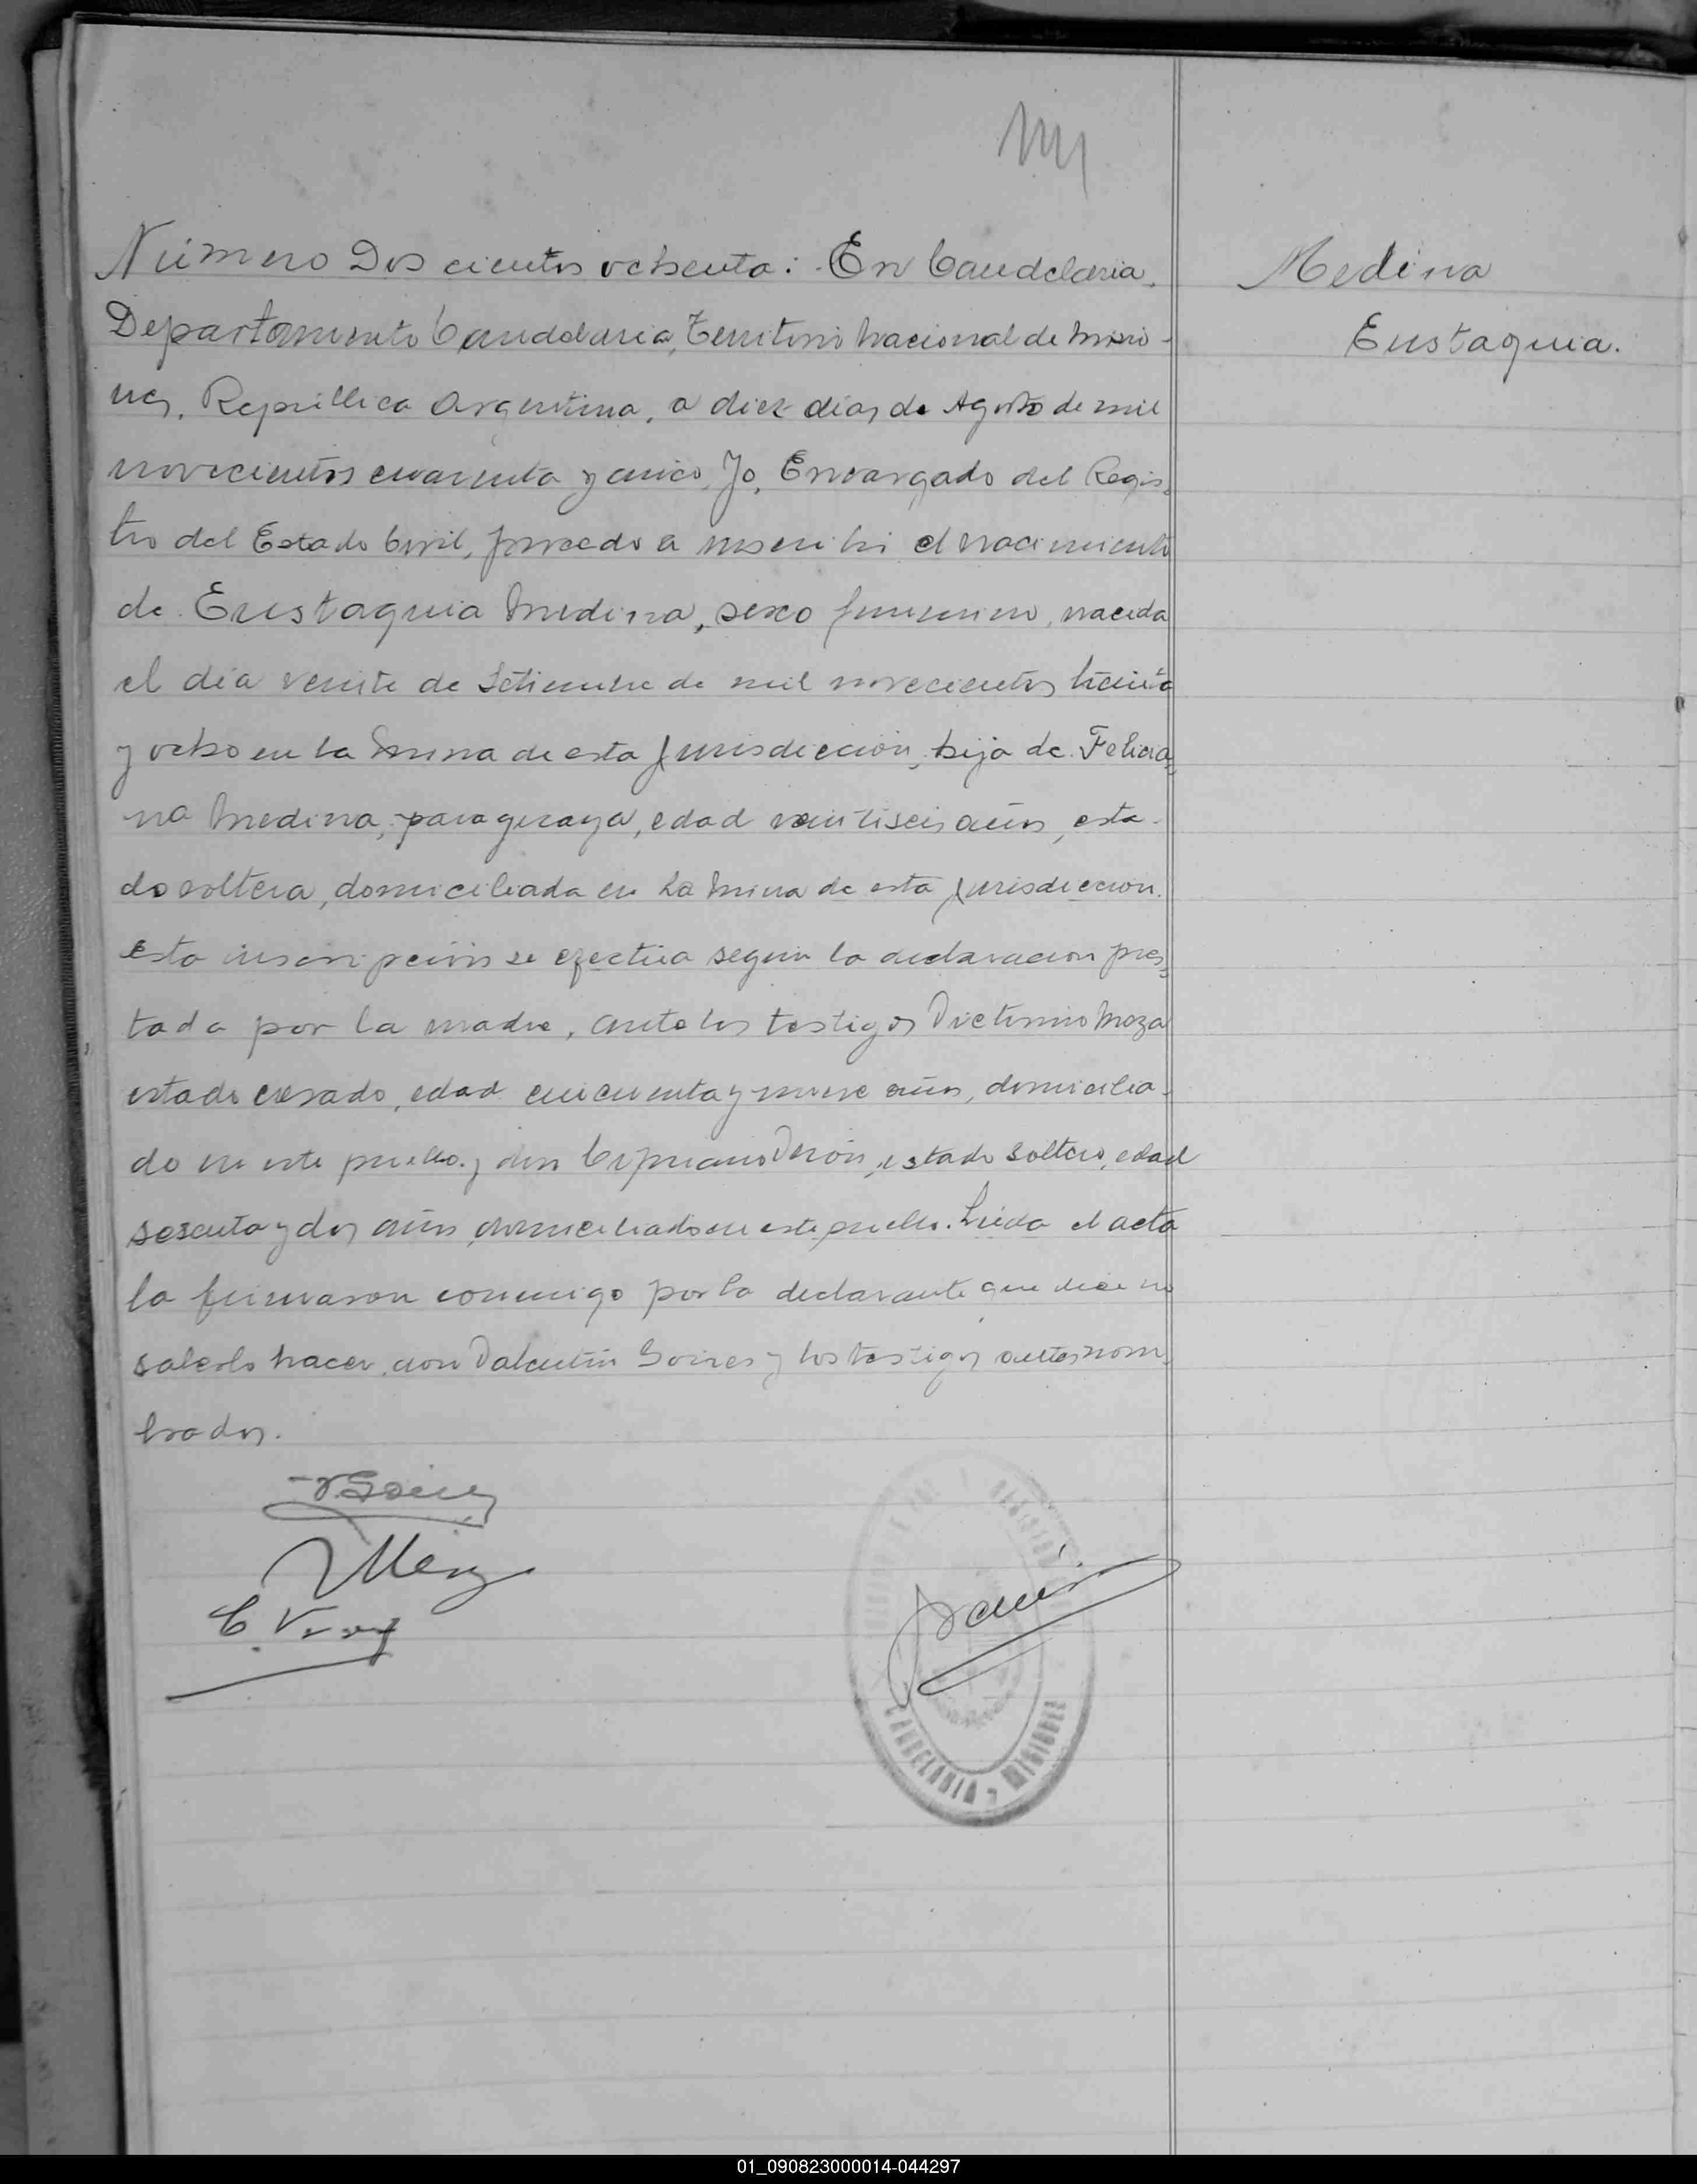 Número Dos cientos ochenta: En Candelaria,
Departamento Candelaria, Territorio Nacional de Misio-
nes, República Argentina, a diez días de Agosto de mil
novecientos cuarenta y cinco, Yo, Encargado del Regis-
tro del Estado Civil, procedo a inscribir el nacimiento
de Eustaquia Medina, sexo femenino, nacida
el día veinte de Setiembre de mil novecientos treinta
y ocho en La Mina de esta jurisdicción, hija de Felicia-
na Medina, paraguaya, edad veintiseis años, esta-
do soltera, domiciliada en La Mina de esta jurisdiccion.
Esta inscripción se efectúa segun la declaracion pres-
tada por la madre, ante los testigos Victorino Meza
estado casado, edad cincuenta y nueve años, domicilia-
do en este pueblo y don Cipriano Verón, estado soltero, edad
sesenta y dos años domiciliado en este pueblo. Leída el acta
la firmaron conmigo por la declarante que dice no
saberlo hacer, don Valentín Goires y los testigos antes nom-
brados.
Medina
Eustaquia.
V. Meza
C. Veron
CANDELARIA - MISIONES
01_090823000014-044297